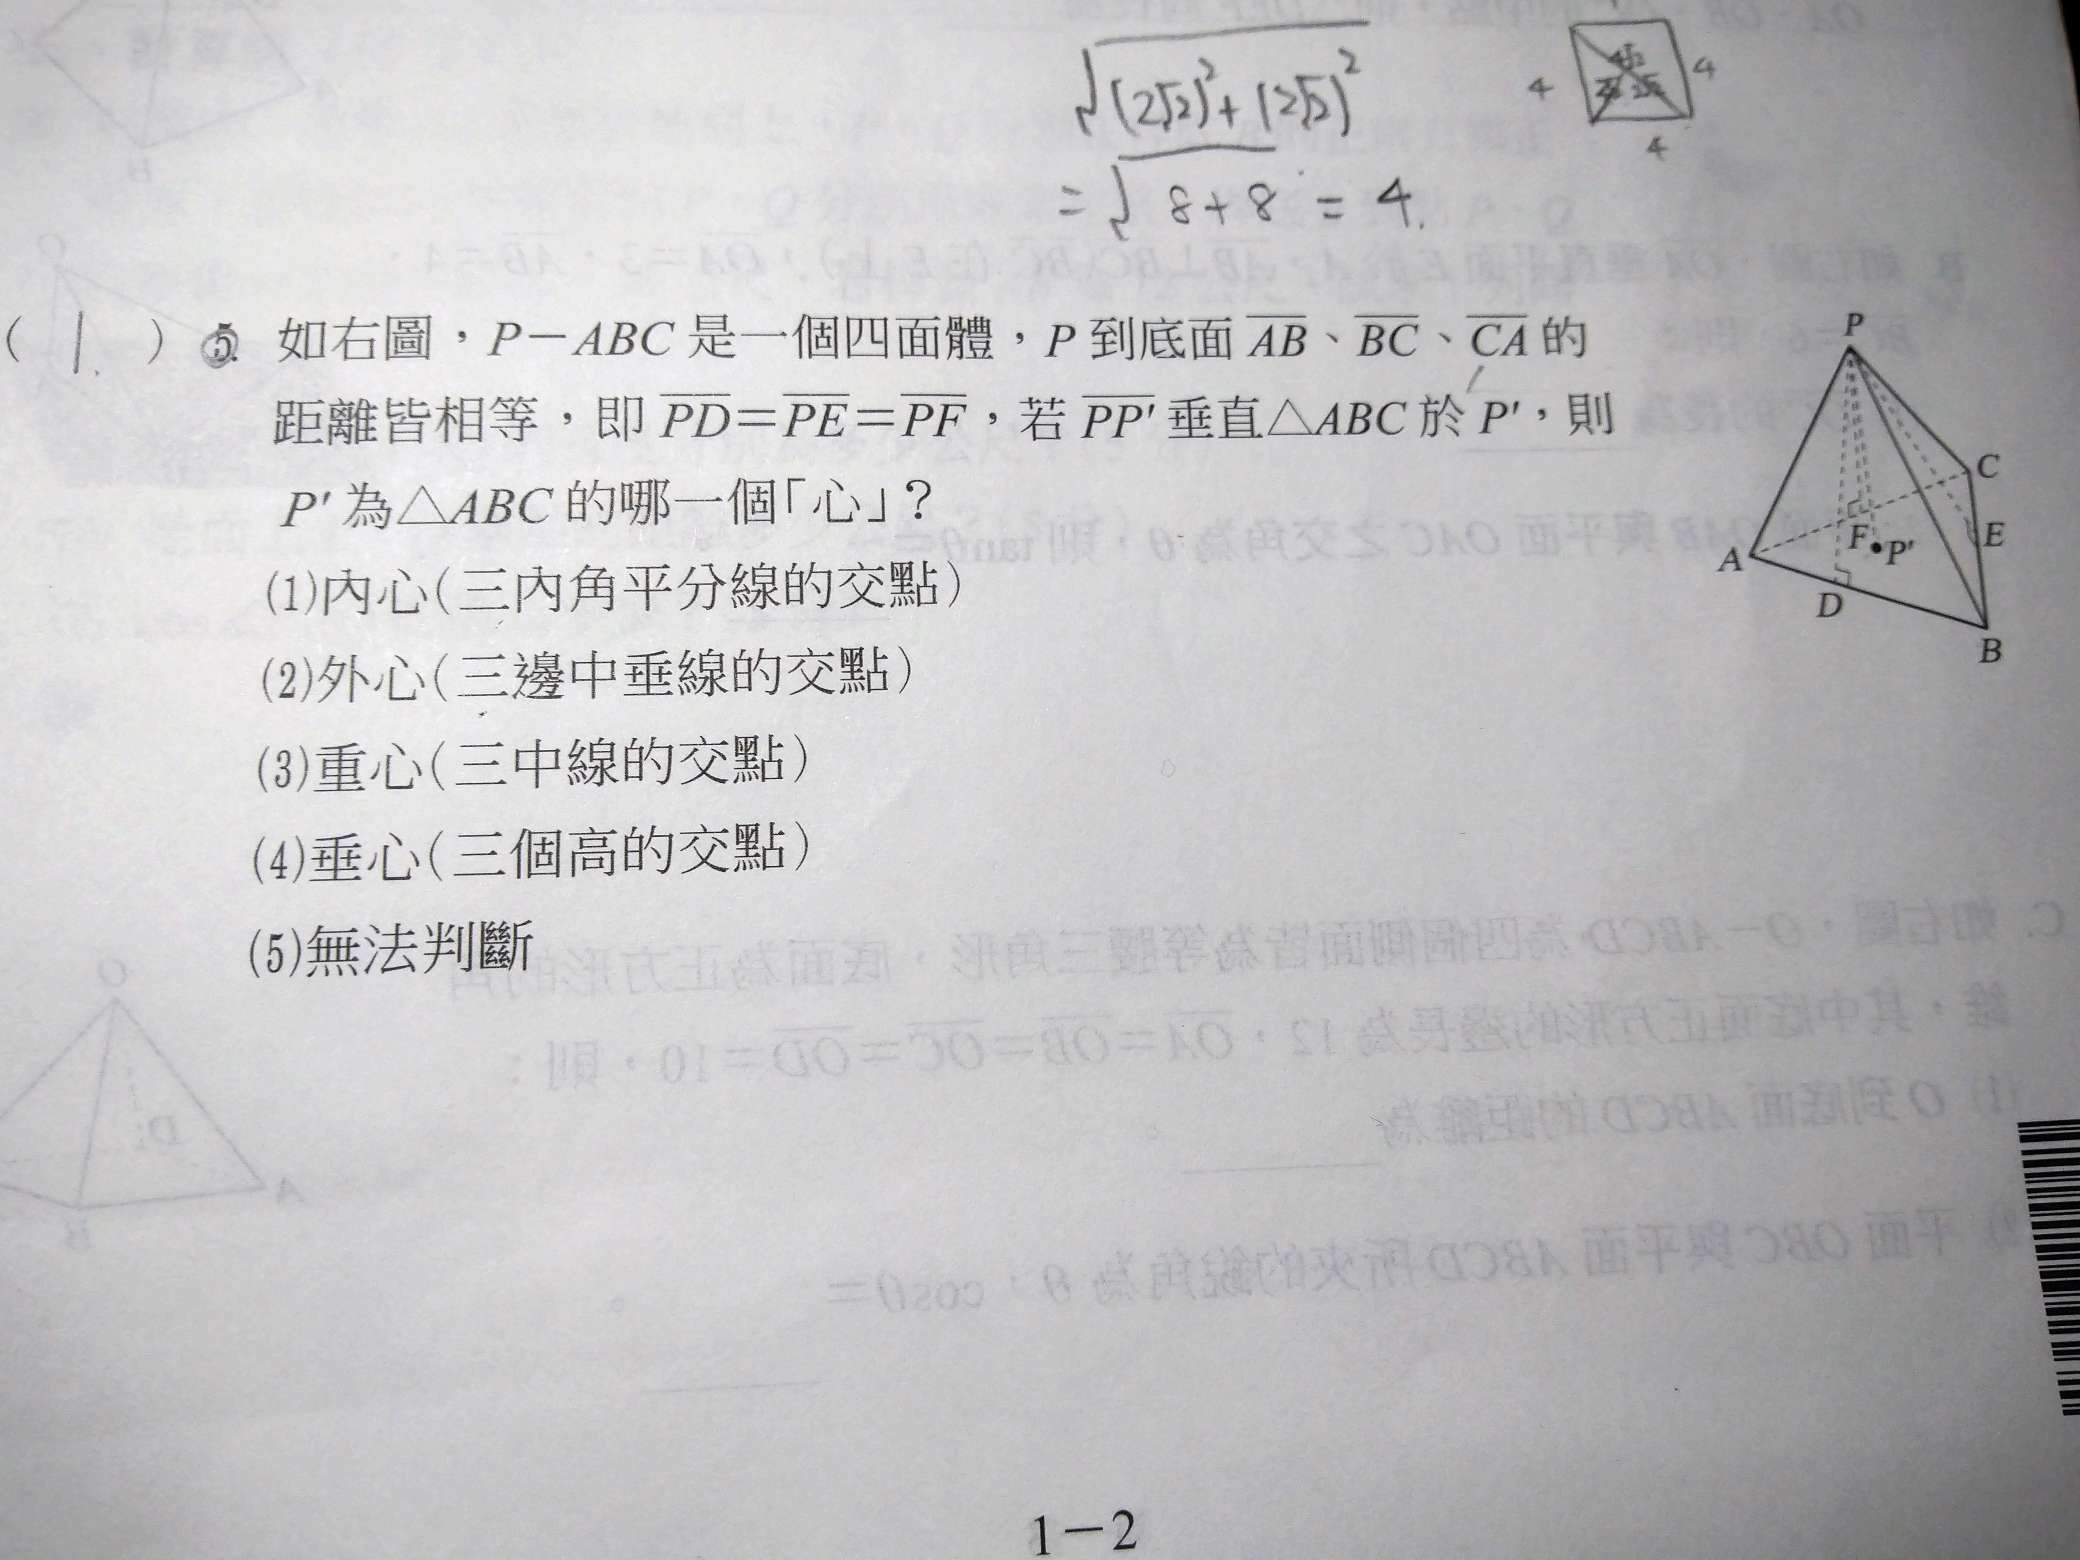 √(2√2)²+(2√2)²
= √8+8 = 4.
4
4
4
( 1. ) 5. 如右圖，P－ABC 是一個四面體，P 到底面 AB、BC、CA 的
距離皆相等，即 PD＝PE＝PF，若 PP' 垂直△ABC 於 P'，則
P' 為△ABC 的哪一個「心」？
(1)內心(三內角平分線的交點)
(2)外心(三邊中垂線的交點)
(3)重心(三中線的交點)
(4)垂心(三個高的交點)
(5)無法判斷
P
C
E
F
P'
A
D
B
1－2